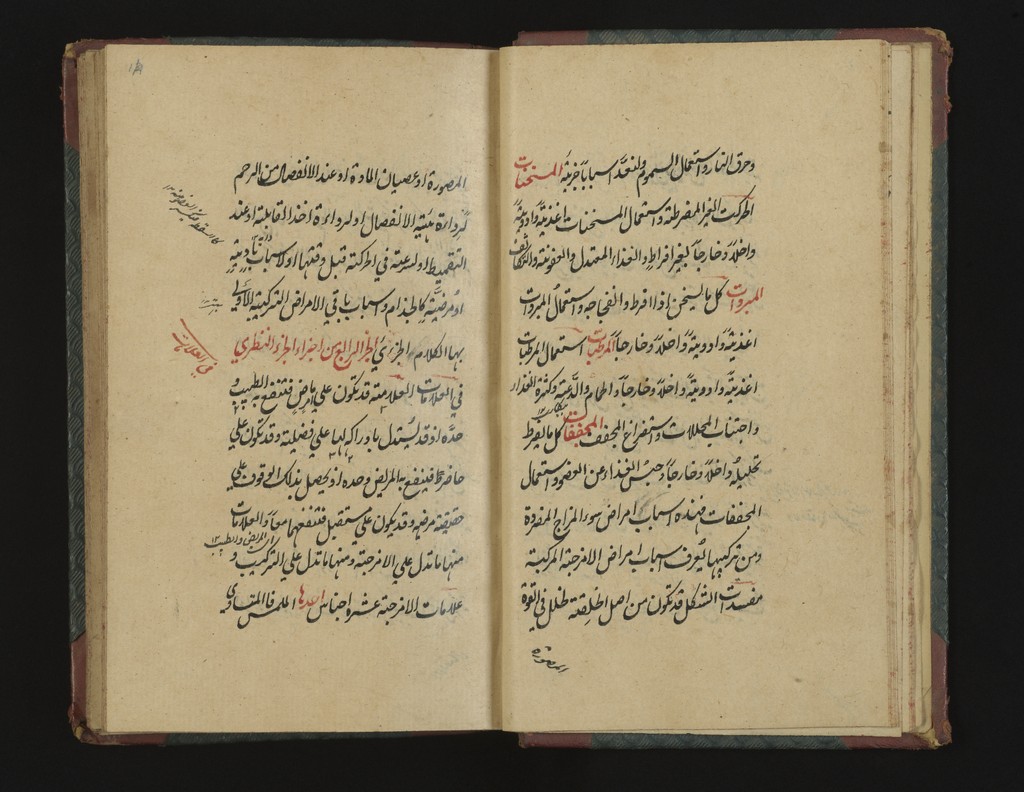 وحرق النار واستعمال السموم ولنعد اسباباً جزئية المسخنات
الحركات الغير المفرطة واستعمال المسخنات اغذية وادوية
داخلاً وخارجاً بغير افراط والغذاء المعتدل والعفونة والتكاثف
المبردات كل ما يسخن اذا افرط والفجاجة واستعمال المبردات
اغذية وادوية داخلاً وخارجاً المرطبات استعمال المرطبات
اغذية وادوية داخلاً وخارجاً والحمام والدعة وكثرة الغذاء
واجتناب المحللات واستفراغ المجفف المجففات كل ما يفرط
تحليله داخلاً وخارجاً وحبس الغذاء عن العضو واستعمال
المجففات فهذه اسباب امراض سوء المزاج المفردة
ومن تركيبها يعرف اسباب امراض الامزجة المركبة
مفسدات الشكل قد تكون من اصل الخلقة لخلل في القوة
المصورة
المصورة او عصيان المادة او عند الانفصال من الرحم
لرداءة هيئة الانفصال او لرداءة اخذ القابلة او عند
التقميط او لسرعة في الحركة قبل وقتها او لاسباب بادية
او مرضية كالجذام واسباب باقي الامراض التركيبية الاولى
بها الكلام الجزئي الجزء الرابع من اجزاء الجزء النظري
في العلامات
في العلامات العلامة قد تكون على ماض فينتفع به الطبيب
وحده اذ قد يستدل بادراكه لها على فضيلته وقد تكون على
حاضر فينتفع به المريض وحده اذ يحصل بذلك الوقوف على
حقيقة مرضه وقد يكون على مستقبل فينتفعا بها معاً والعلامات
اى المريض والطبيب
منها ما تدل على الامزجة ومنها ما تدل على التركيب و
علامات الامزجة عشرة اجناس احدها الملمس فالمتساوي